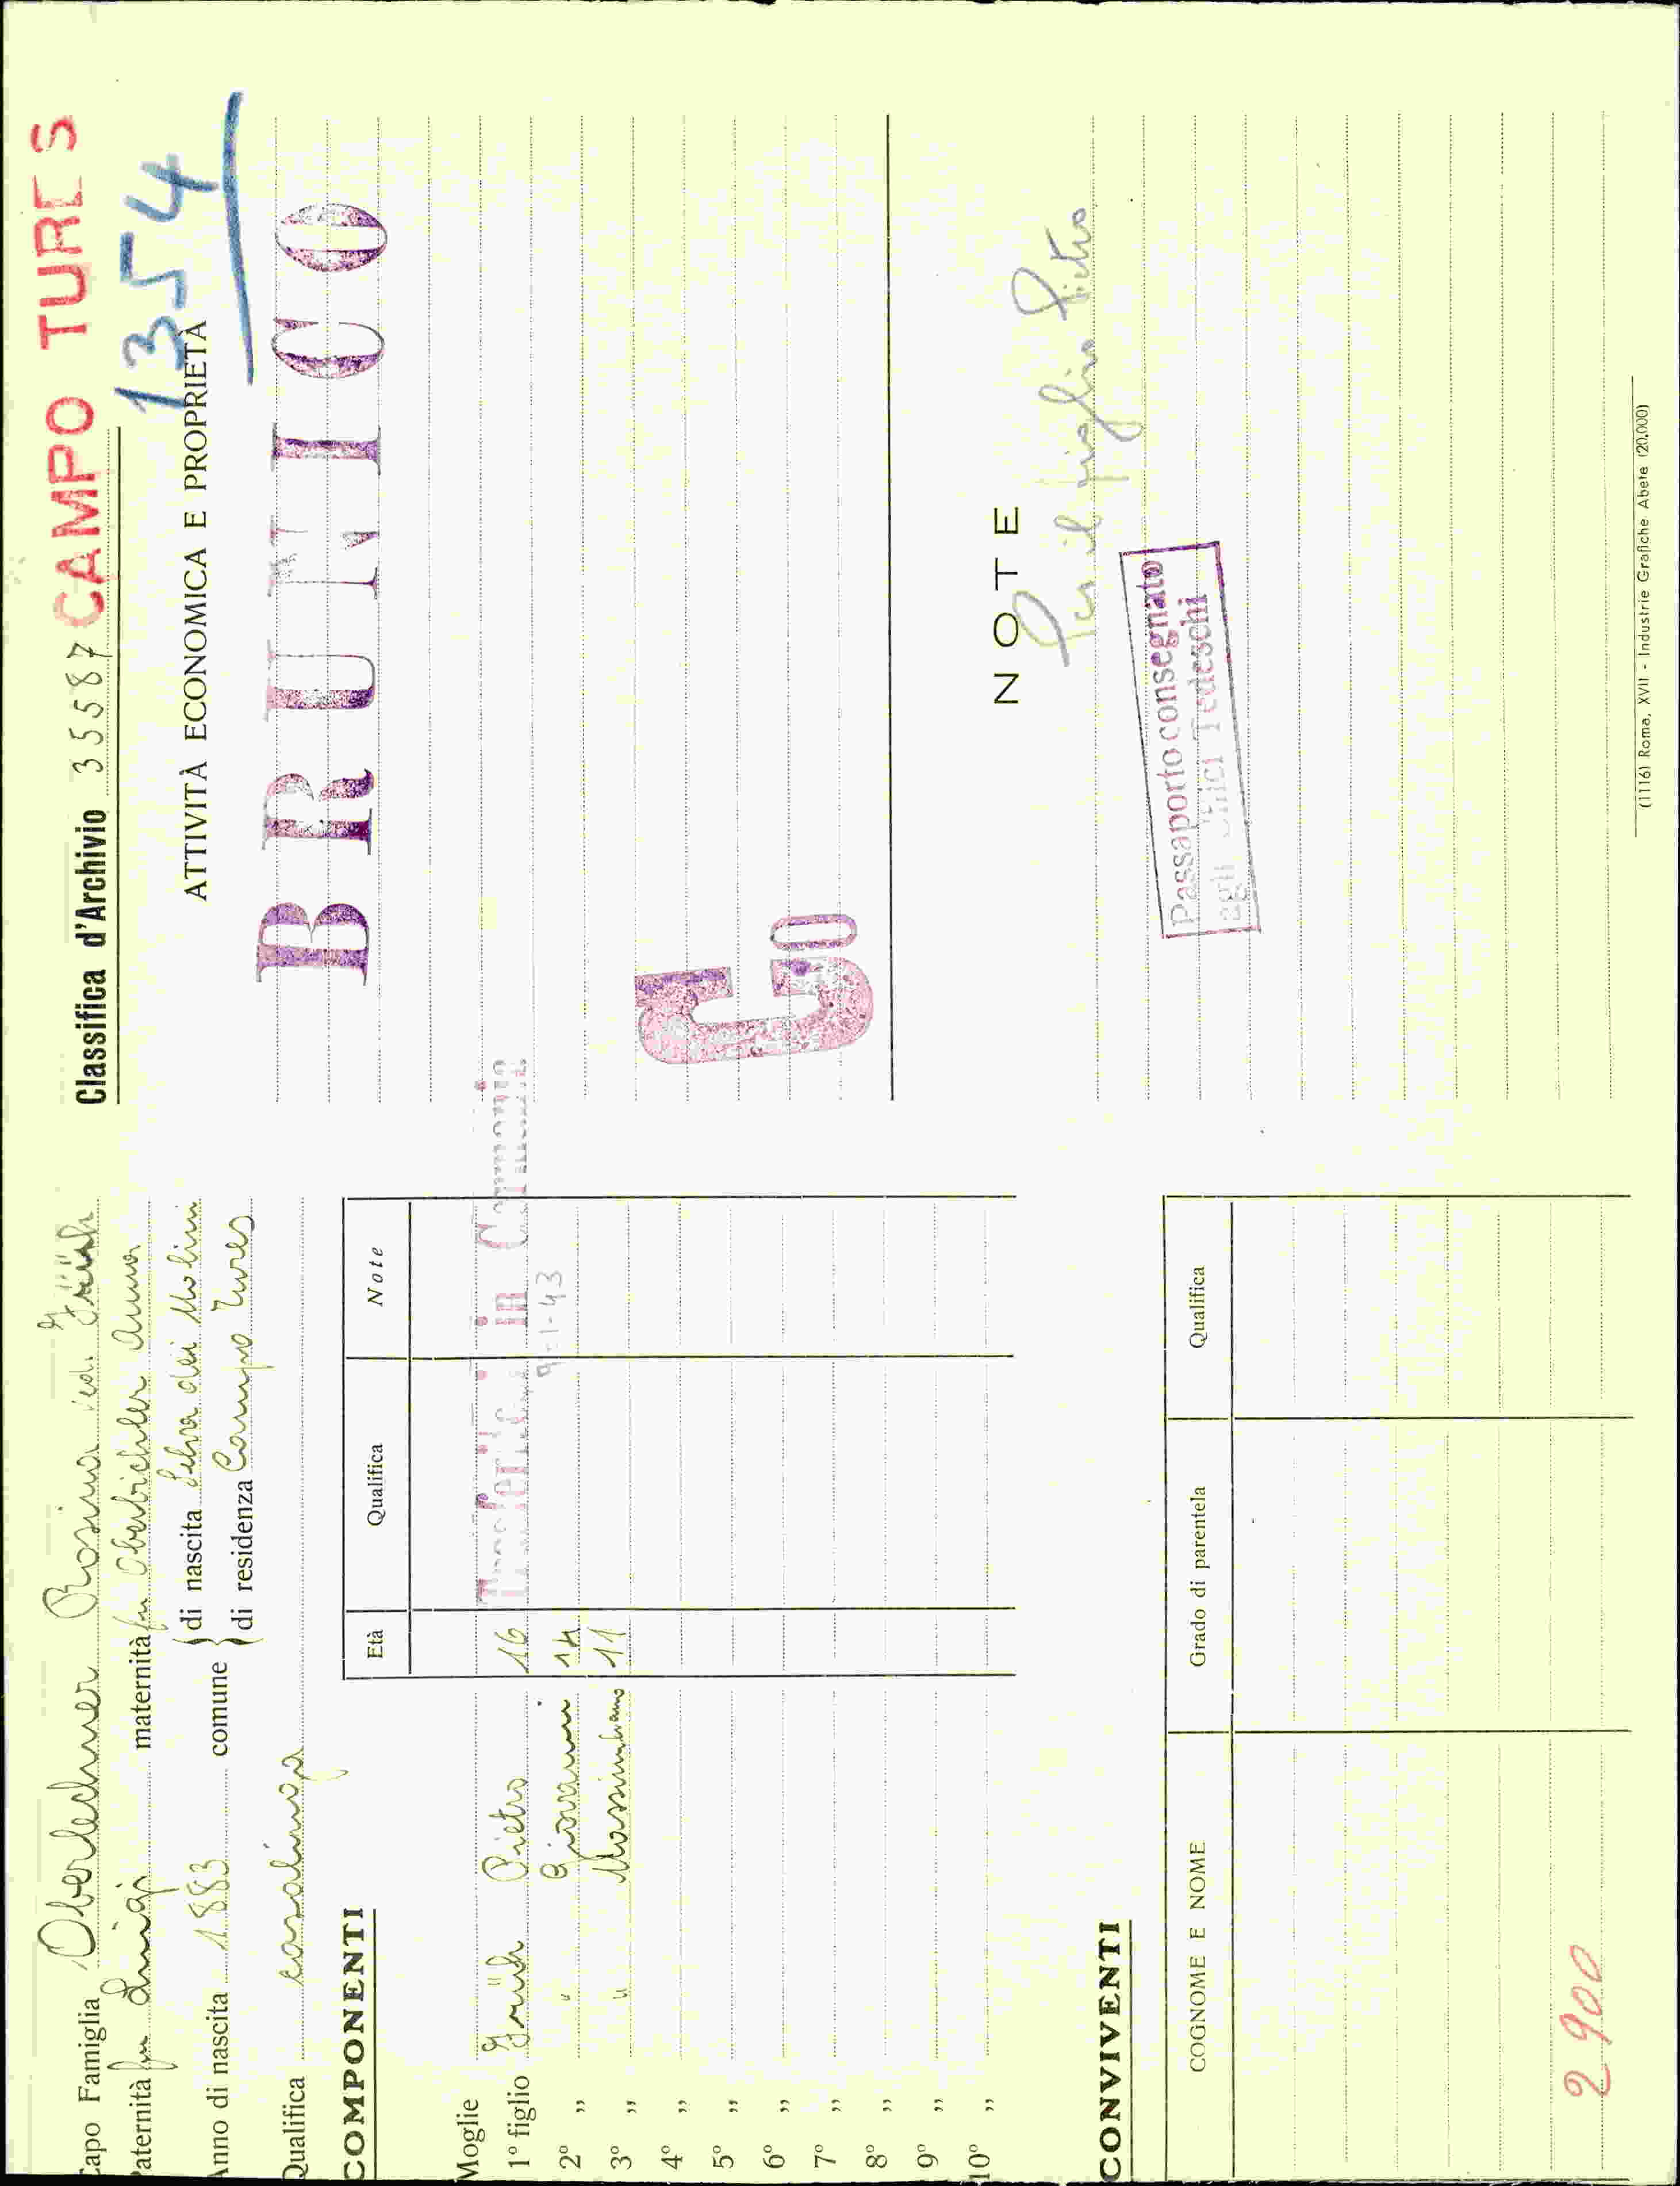 Capo Famiglia Oberlechner Rosina ved. Früh
Paternità fu Luigi maternità fu Oberbichler Anna
Anno di nascita 1883 comune di nascita Selva dei Molini
di residenza Campo Tures
Qualifica casalinga
COMPONENTI
Età Qualifica Note
Moglie
1º figlio Früh Pietro 16
2º „ " Giovanni 14
3º „ " Massimiliano 11
4º „
5º „
6º „
7º „
8º „
9º „
10º „
Trasferito in Germania
9-1-43
CONVIVENTI
COGNOME E NOME Grado di parentela Qualifica
2900
Classifica d'Archivio 35587 CAMPO TURES
1354
ATTIVITÀ ECONOMICA E PROPRIETÀ
BRUNICO
NOTE
Per il figlio Pietro
Passaporto consegnato
agli Uffici Tedeschi
(1116) Roma, XVII - Industrie Grafiche Abete (20.000)